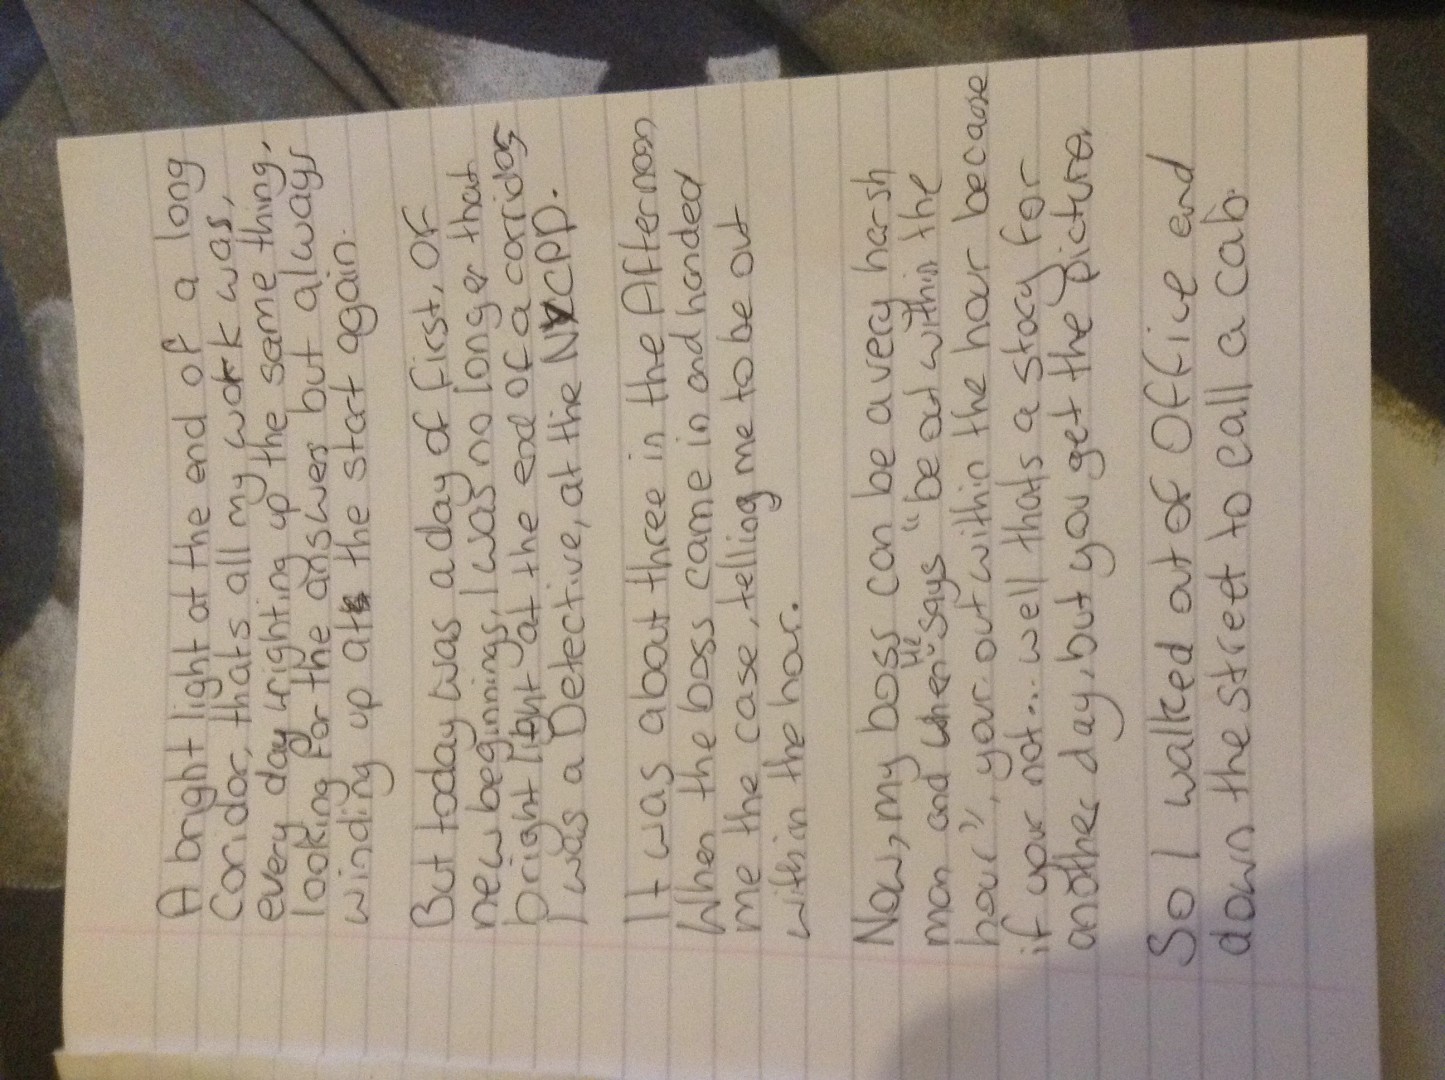 A bright light at the end of a long
Coridor, thats all my work was,
every day wrighting up the same thing,
looking for the answers but always
winding up at the start again.
But today was a day of first, of
new beginnings, I was no longer that
bright light at the end of a corridor
I was a Detective, at the NYCPD.
It was about three in the Afternoon
When the boss came in and handed
me the case, telling me to be out
within the hour.
Now, my boss can be a very harsh
man and when he says "be out within the
hour", your out within the hour because
if your not... well thats a story for
another day, but you get the picture.
So I walked out of Office and
down the street to call a cab.